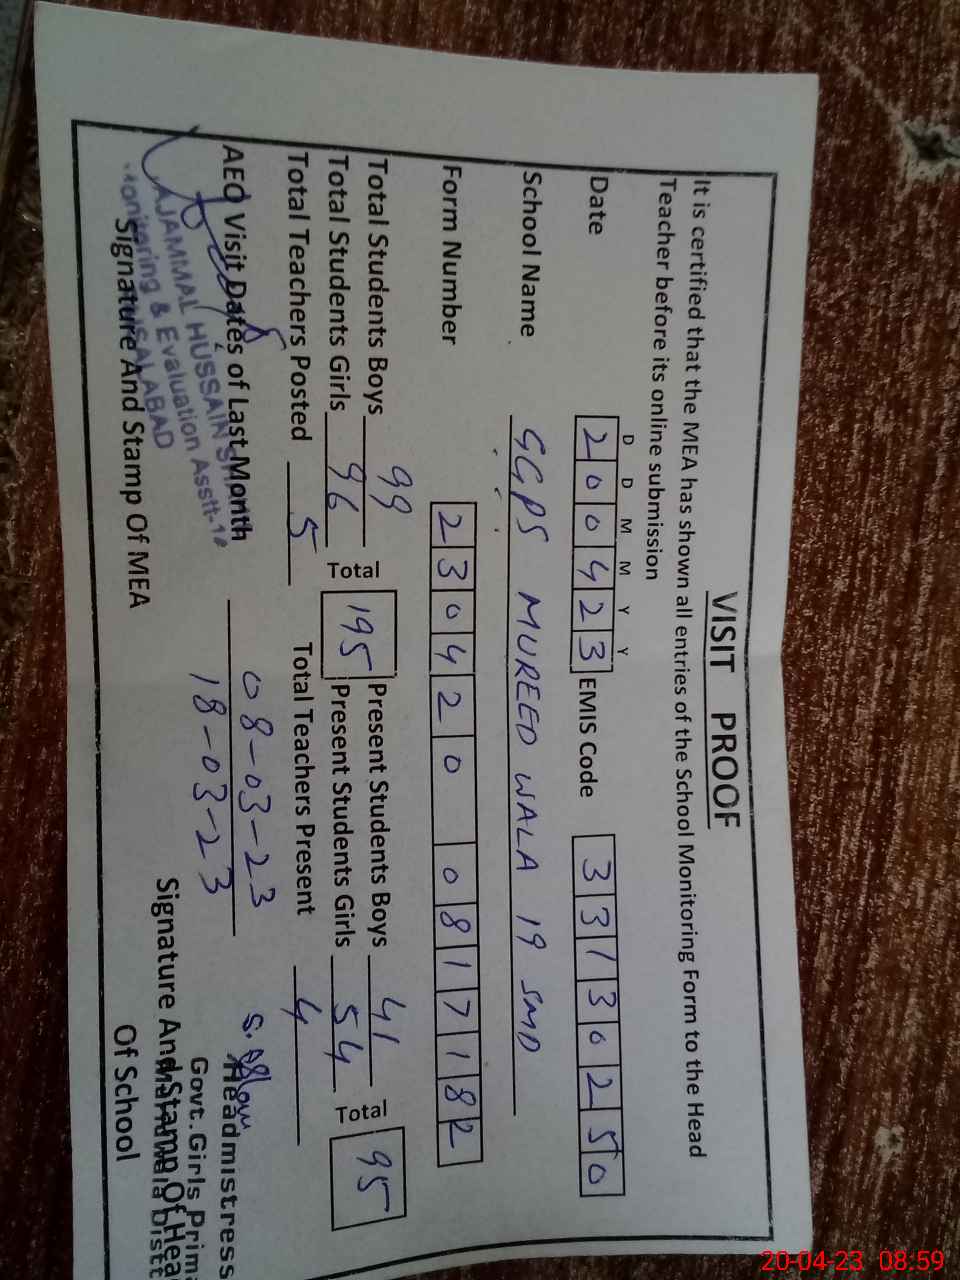 VISIT PROOF
It is certified that the MEA has shown all entries of the School Monitoring Form to the Head
Teacher before its online submission
D D M M Y Y
Date 200423 EMIS Code 33130250
School Name GGPS MUREED WALA 19 SMD
Form Number 230420 0817182
Total Students Boys 99 Present Students Boys 41
Total Students Girls 96 Total 195 Present Students Girls 54 Total 95
Total Teachers Posted 5 Total Teachers Present 4
AEO Visit Dates of Last Month 08-03-23
18-03-23
AJAMMAL HUSSAIN
Monitoring & Evaluation Asstt-
Signature And Stamp Of MEA
Headmistress
Govt. Girls
Signature And Stamp Of Head
Of School
20-04-23 08:59